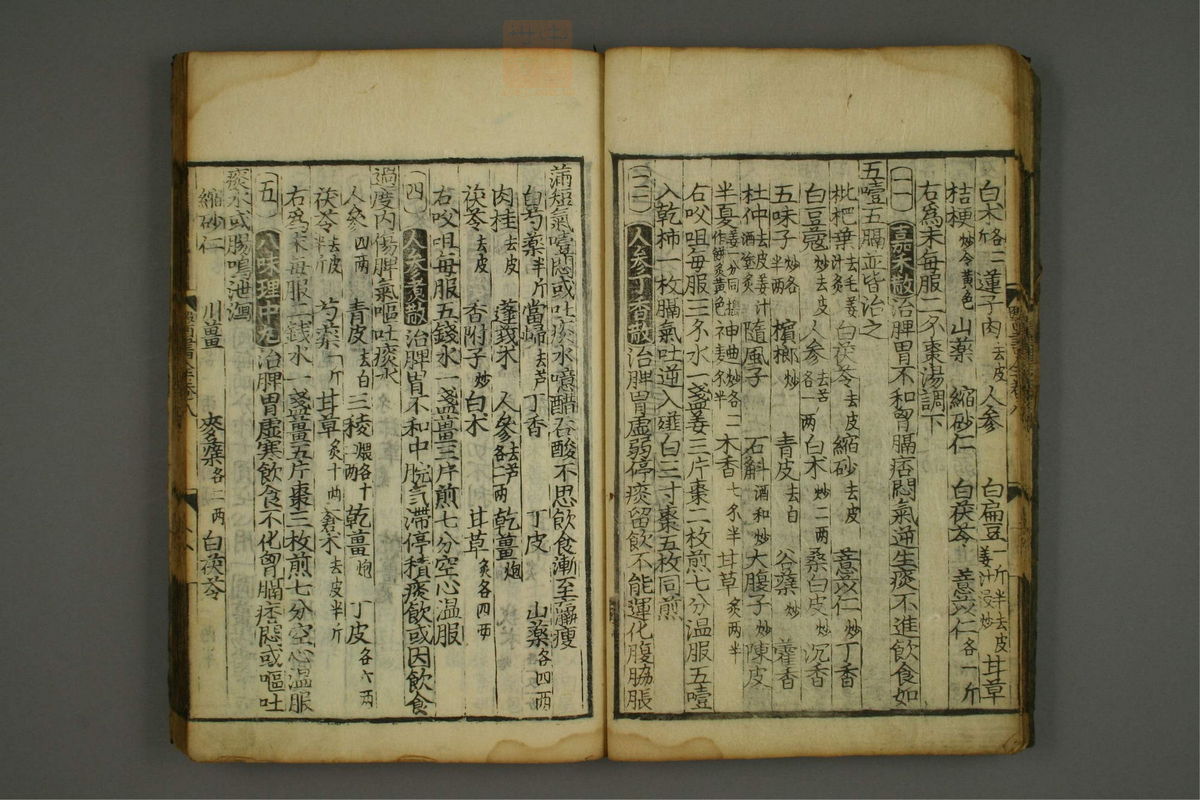 白术各二斤 蓮子肉去皮 人参 白扁豆一斤半去皮姜汁浸炒 甘草
桔梗炒令黄色 山藥 縮砂仁 白茯苓 薏苡仁各一斤
右為末每服二錢棗湯調下
(二) 嘉禾散 治脾胃不和胷膈痞悶氣逆生痰不進飲食如
五噎五膈並皆治之
枇杷葉去毛姜汁炙 白茯苓去皮 縮砂去皮 薏苡仁炒 丁香
白豆蔻炒去皮 人参去芦各一兩 白术炒二兩 桑白皮炒 沉香
五味子炒各半兩 檳榔炒 青皮去白 谷蘖炒 藿香
杜仲去皮姜汁酒塗炙 隨風子 石斛酒和炒 大腹子炒 陳皮
半夏姜一分同擣作餅炙黄色 神曲炒各二 木香七錢半 甘草炙兩半
右㕮咀每服三錢水一盞姜三片棗二枚煎七分温服五噎
入乾柿一枚膈氣吐逆入薤白三寸棗五枚同煎
(三) 人参丁香散 治脾胃虚弱停痰留飲不能運化腹脇脹
滿短氣噎悶或吐痰水噫醋吞酸不思飲食漸至羸瘦
白芍藥半斤 當歸去芦 丁香 丁皮 山藥各四兩
肉桂去皮 蓬莪朮 人參去芦各二兩 乾薑炮
茯苓去皮 香附子炒 白术 甘草炙各四兩
右㕮咀每服五錢水一盞薑三片煎七分空心温服
(四) 人參煑散 治脾胃不和中脘氣滯停積痰飲或因飲食
過度内傷脾氣嘔吐痰水
人參四兩 青皮去白 三稜煨各十兩 乾薑炮 丁皮各六兩
茯苓去皮半斤 芍藥一斤 甘草炙十兩 蒼术去皮半斤
右爲末每服二錢水一盞薑五片棗三枚煎七分空心温服
(五) 八味理中丸 治脾胃虚寒飲食不化胷膈痞悶或嘔吐
痰水或腸鳴泄瀉
縮砂仁 川薑 麥蘖各二兩 白茯苓